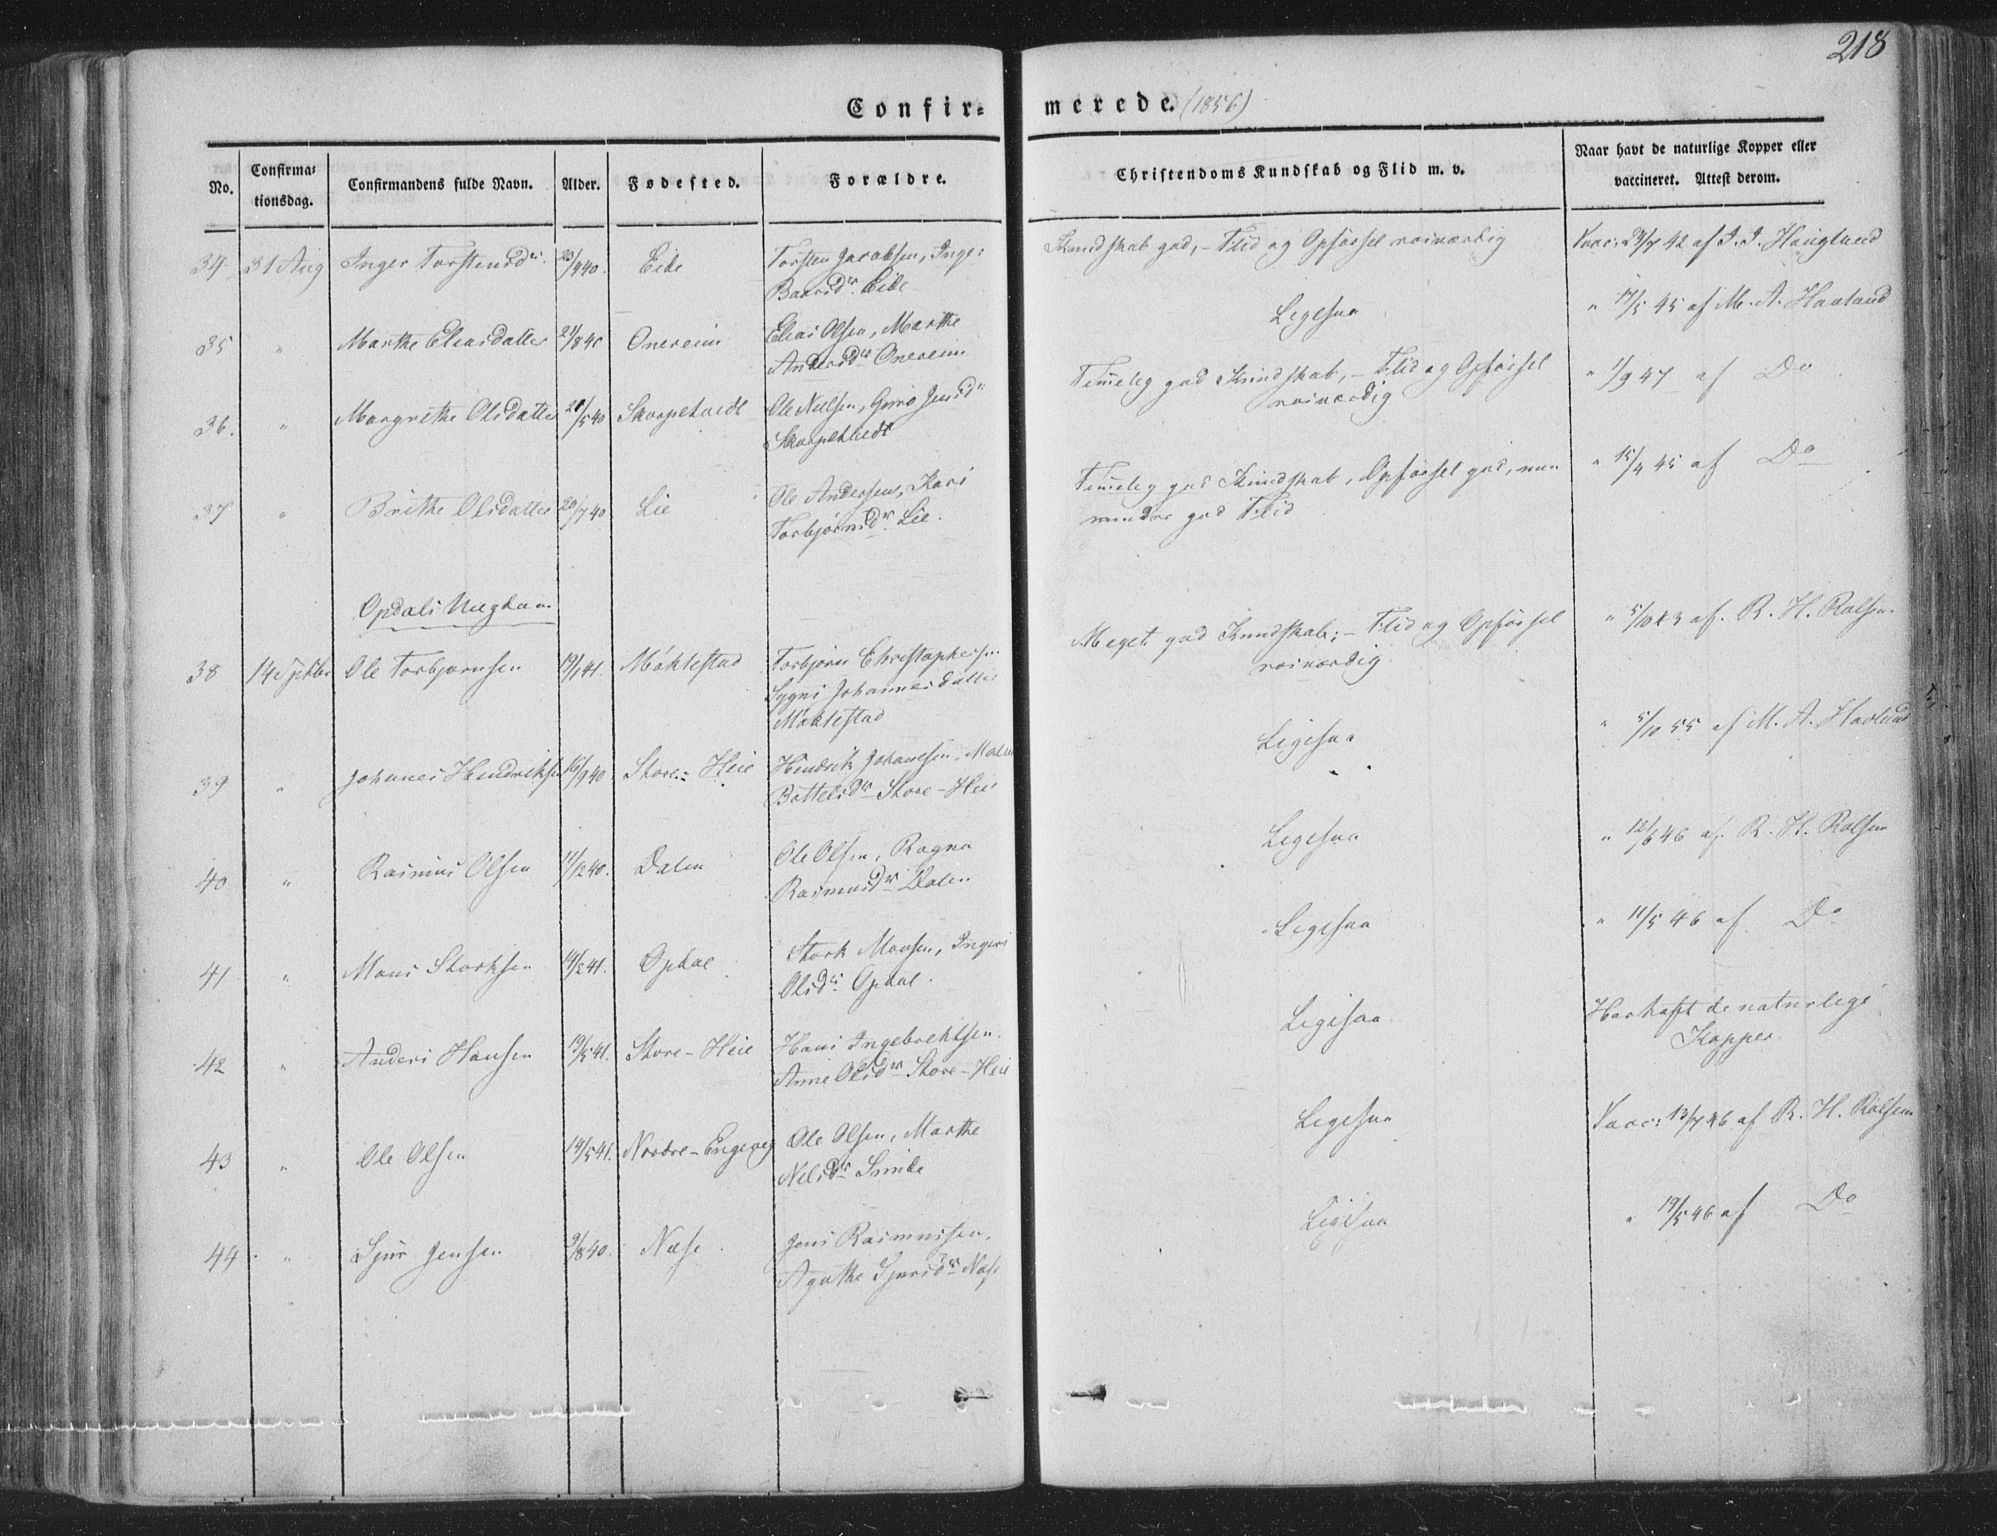 218
Confir- merede. (1856)
No. Confirma- tionsdag. Confirmandens fulde Navn. Alder. Fødested. Forældre. Christendoms Kundskab og Flid m. v. Naar havt de naturlige Kopper eller vaccineret. Attest derom.
34. 31 Aug Inger Torstensdr. 23/9 40. Eide Torsten Jacobsen, Inger Kundskab god, - Flid og Opførsel roisværdig Vacc: 23/7 42 af J. J. Haugland
Baarsdr. Eide
35 " Marthe Eliasdatter 21/8 40 Onereim Elias Olsen, Marthe Ligesaa " 17/5 45 af M. A. Havland
Andersdr Onereim
36. " Margrethe Olsdatter /5 40 Skarpetvedt Ole Nielsen, Guro Temelig god Kundskab, - Flid og Opførsel " 1/9 47 af Do
Skarpetvedt roisværdig
37 " Birithe Olsdatter 20/7 40. Lie Ole Andersen, Kari Temelig god Kundskab, Opførsel god, men " 15/4 45 af Do
Torbjørnsdr. Lie. mindre god Flid
Opdals
38 14 Septbr Ole Torbjørnsen 19/1 41. Møklestad Torbjørn Christophersen Meget god Kundskab; - Flid og Opførsel " 5/10 43 af. R. H. Rolfsen.
Sygni Johannesdatter roisværdig
Møklestad
39 " Johannes Hendriksen 16/9 40 Store-Heie Hendrik Johannesen, Malene Ligesaa " 5/10 55 af M. A. Havland
Bottelsdr Store-Heie
40 " Rasmus Olsen 11/12 40. Dalen Ole Olsen, Ragna Ligesaa " 12/6 46 af. R. H. Rolfsen
Rasmusdr Dalen
41 " Mons Storksen 14/2 41. Opdal Stork Monsen, Ingeri Ligesaa " 11/5 46 af Do
Olsdr Opdal.
42 " Anders Hansen 19/5 41. Store-Heie Hans Ingebrektsen. Ligesaa Har haft de naturlige
Anne Olsdr Store-Heie Kopper.
43 " Ole Olsen 14/5 41. Nordre-Engevig Ole Olsen, Marthe Ligesaa Vacc: 13/7 46 af R. H. Rolfsen
Nelsdr
44 " Sjur Jensen 9/8 40. Næse Jens Rasmussen, Ligesaa " 19/5 46 af Do
Agathe Sjursdr Næse